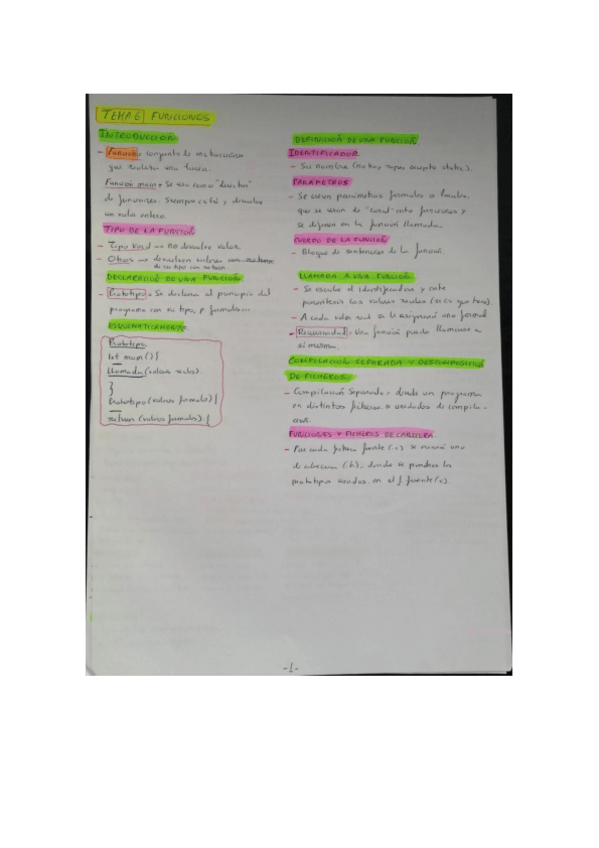 TEMA 6 FUNCIONES
INTRODUCCIÓN
- Función: conjunto de instrucciones
que realizan una tarea.
Función main: Se usa como "
de funciones. Siempre está y devuelve
un valor entero.
TIPO DE LA FUNCIÓN
- Tipo Void → no devuelve valor.
- Otros → devuelven valores
de su tipo con return.
DECLARACIÓN DE UNA FUNCIÓN
- Prototipo: Se declara al principio del
programa con su tipo, p formales...
ESQUEMATICAMENTE
Prototipo
int main(){
llamada(valores reales).
}
Prototipo(valores formales){
return (valores formales). {
DEFINICIÓN DE UNA FUNCIÓN
IDENTIFICADOR
- Su nombre (no hay
PARAMETROS
- Se crean parámetros formales o locales,
que se usan de "canal" entre funciones y
se definen en la función llamada.
CUERPO DE LA FUNCIÓN
- Bloque de sentencias de la función.
LLAMADA A UNA FUNCIÓN
- Se escribe el identificador y entre
parentesis los valores reales (si es que tiene).
- A cada valor real se le asignará uno formal
- Recursividad: Una función puede llamarse a
si misma.
COMPILACIÓN SEPARADA Y DESCOMPOSICIÓN
DE FICHEROS
- Compilación Separada: divide un programa
en distintos ficheros o unidades de compila-
ción.
FUNCIONES Y FICHEROS DE CABECERA
- Por cada fichero fuente (.c) se creará uno
de cabecera (.h), donde se pondrán los
prototipos usados en el f. fuente (.c).
-1-